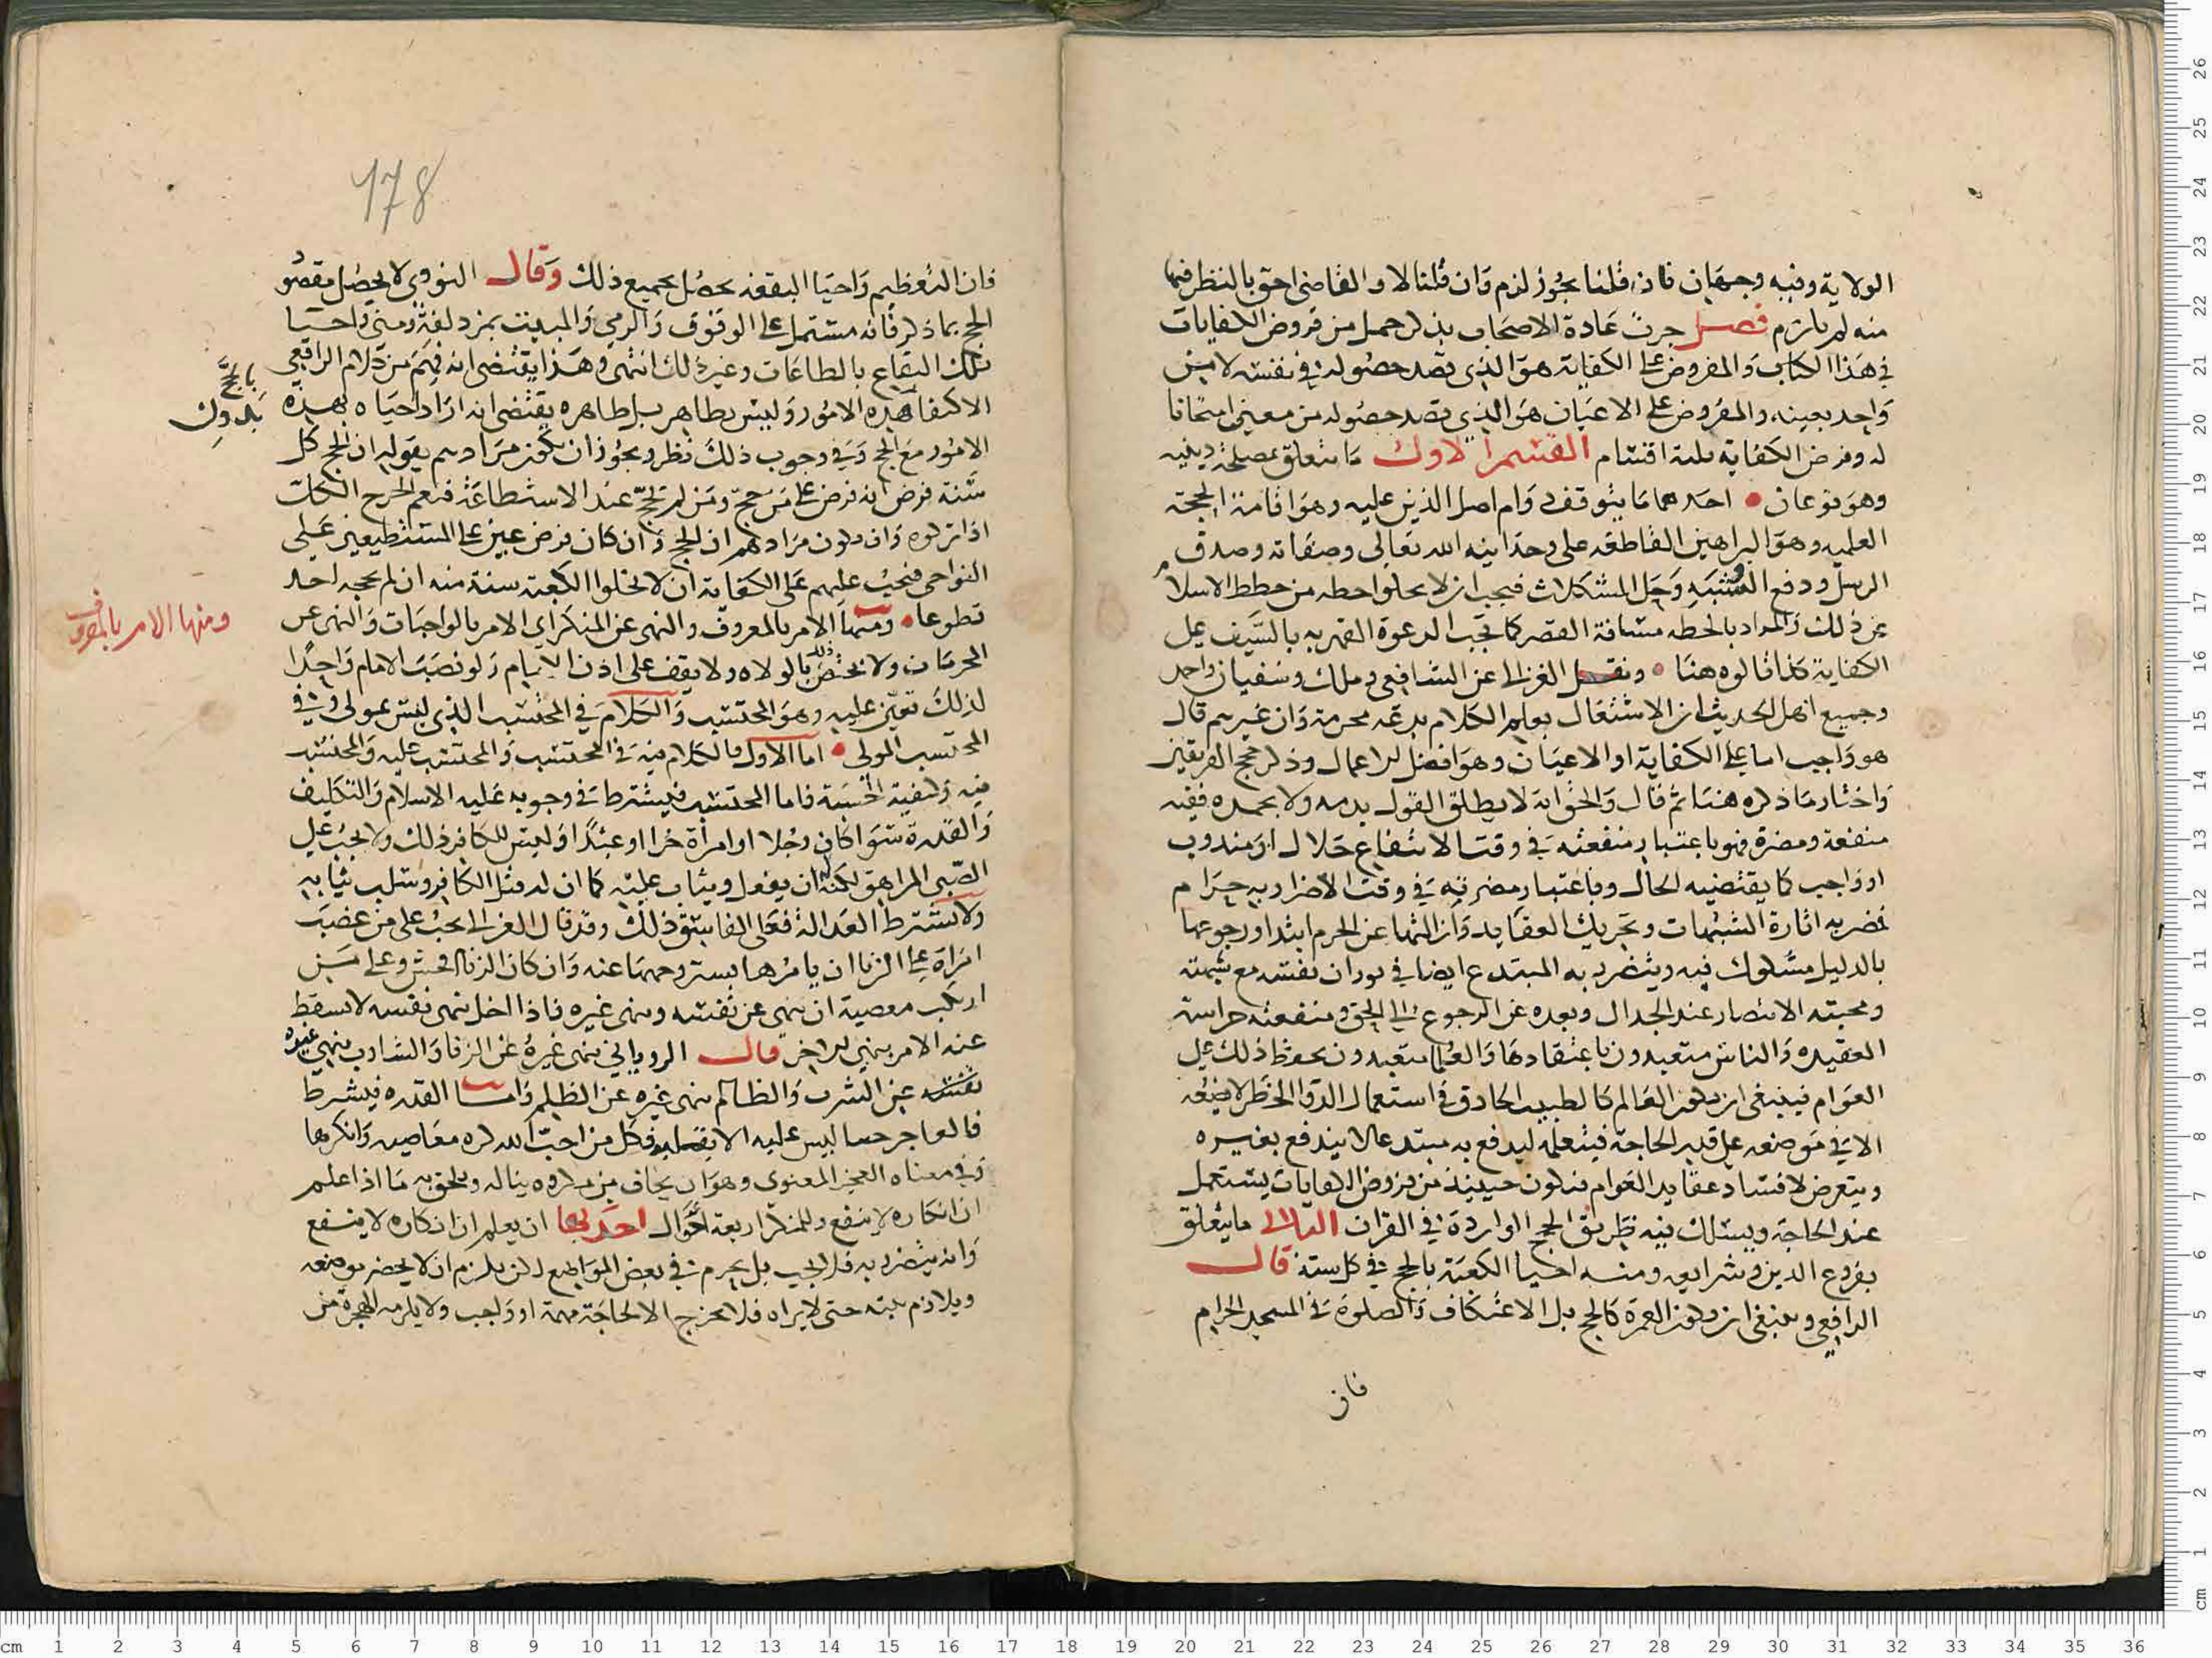 الولاية وفيه وجهان فان قلنا يجوز لزم وان قلنا لا والقاضي احق بالنظر فيها
منه لم يلزم فصل جرت عادة الاصحاب بذكر جمل من فروض الكفايات
في هذا الكتاب والمفروض على الكفاية هو الذي قصد حصوله في نفسه لا من
واحد بعينه والمفروض على الاعيان هو الذي قصد حصوله من معين امتحانا
له وفرض الكفاية ثلثة اقسام القسم الاول ما يتعلق بمصلحة دينيه
وهو نوعان احدهما ما يتوقف دوام اصل الدين عليه وهو اقامة الحجة
العلميه وهو البراهين القاطعه على وحدانيه الله تعالى وصفاته وصدق
الرسل ودفع الشبه وحل المشكلات فيجب ان لا يخلوا خطه من خطط الاسلام
عن ذلك والمراد بالخطه مسافة القصر كما تجب الدعوة القهريه بالسيف على
الكفاية كذا قالوه هنا ونقل الغزالي عن الشافعي وملك وسفيان واحمد
وجميع اهل الحديث ان الاشتغال بعلم الكلام بدعه محرمة وان غيرهم قال
هو واجب اما على الكفاية او الاعيان وهو افضل الاعمال وذكر حجج الفريقين
واختار ما ذكره هنا ثم قال والحق انه لا يطلق القول بذمه ولا بحمده ففيه
منفعة ومضرة فهو باعتبار منفعته في وقت الانتفاع حلال او مندوب
او واجب كما يقتضيه الحال وباعتبار مضرته في وقت الاضرار به حرام
فضربه اثارة الشبهات وتحريك العقايد وازالتها عن الجزم ابتدا ورجوعها
بالدليل مشكوك فيه ويتضرر به المبتدع ايضا في ثوران نفسه مع شبهته
ومحبته الانتصار عند الجدال وبعده عن الرجوع الى الحق ومنفعته حراسة
العقيده والناس متعبدون باعتقادها والعلما متعبدون بحفظ ذلك على
العوام فينبغي ان يكون العالم كالطبيب الحاذق في استعمال الدوا الخطر لا يضعه
الا في موضعه على قدر الحاجة فيتعلمه ليدفع به مبتدعا لا يندفع بغيره
ويتعرض لافساد عقايد العوام فيكون حينئذ من فروض الكفايات يستعمل
عند الحاجة ويسلك فيه طريق الحجج الواردة في القران الثاني ما يتعلق
بفروع الدين وشرايعه ومنه احيا الكعبة بالحج في كل سنة قال
الرافعي وينبغي ان يكون العمرة كالحج بل الاعتكاف والصلوة في المسجد الحرام
فان
178
فان التعظيم واحيا البقعه يحصل بجميع ذلك وقال النووي لا يحصل مقصود
الحج بما ذكر فانه مشتمل على الوقوف والرمي والمبيت بمزدلفة ومنى واحيا
تلك البقاع بالطاعات وغير ذلك انتهى وهذا يقتضي انه فهم من كلام الرافعي
الاكتفا بهذه الامور وليس بظاهر بل ظاهره يقتضي انه اراد احياه بهذه
بالحج
الامور مع الحج وفي وجوب ذلك نظر ويجوز ان يكون مرادهم بقولهم ان الحج كل
سنة فرض انه فرض على من حج ومن لم يحج عند الاستطاعة فيعم الحرج الكل
اذا تركوه وان يكون مرادهم ان الحج وان كان فرض عين على المستطيعين على
النواحي فيجب عليهم على الكفاية ان لا تخلوا الكعبة سنة منه ان لم يحجه احد
تطوعا ومنها الامر بالمعروف والنهي عن المنكر اي الامر بالواجبات والنهي عن
ومنها الامر بالمعروف
المحرمات ولا يختص ذلك بالولاه ولا يقف على اذن الامام ولو نصب الامام واحدا
لذلك تعين عليه وهو المحتسب والكلام في المحتسب الذي ليس بمولى وفي
المحتسب المولى اما الاول فالكلام فيه في المحتسب والمحتسب عليه والمحتسب
فيه وكيفية الحسبة فاما المحتسب فيشترط في وجوبه عليه الاسلام والتكليف
والقدرة سوا كان رجلا او امراة حرا او عبدا وليس للكافر ذلك ولا يجب على
الصبي المراهق لكن له ان يفعل ويثاب عليه كما ان له قتل الكافر وسلب ثيابه
ولا يشترط العدالة فعلى الفاسق ذلك وقد قال الغزالي يجب على من غصب
امراة على الزنا ان يامرها بستر وجهها عنه وان كان الزنا افحش وعلى من
ارتكب معصية ان ينهى عن نفسه وينهى غيره فاذا اخل بنهي نفسه لا يسقط
عنه الامر بنهي الاخر قال الروياني ينهى غيره عن الزنا والشارب ينهى غيره
نفسه عن الشرب والظالم ينهى غيره عن الظلم واما القدره فيشرط
فالعاجز حسا ليس عليه الا بقلبه فكل من احب الله كره معاصيه وانكرها
وفي معناه العجز المعنوي وهو ان يخاف من مكروه يناله ويلحق به ما اذا علم
ان انكاره لا ينفع وللمنكر اربعة احوال احديها ان يعلم ان انكاره لا ينفع
وانه يتضرر به فلا يجب بل يحرم في بعض المواضع لكن يلزم ان لا يحضر موضعه
ويلازم بيته حتى لا يراه فلا يخرج الا لحاجة مهمة او واجب ولا يلزمه الهجرة من